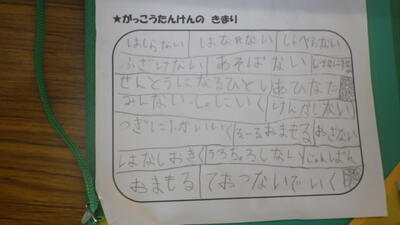 ★がっこうたんけんの きまり
はしらない はなれない しゃべらない
ふざけない あそばない
せんとうになるひとり
みんないっしょにいく けんかしない
つぎにいく るーるおまもる おさない
はなしおきく うろちょろしない じゅんばん
おまもる ておつないでいく